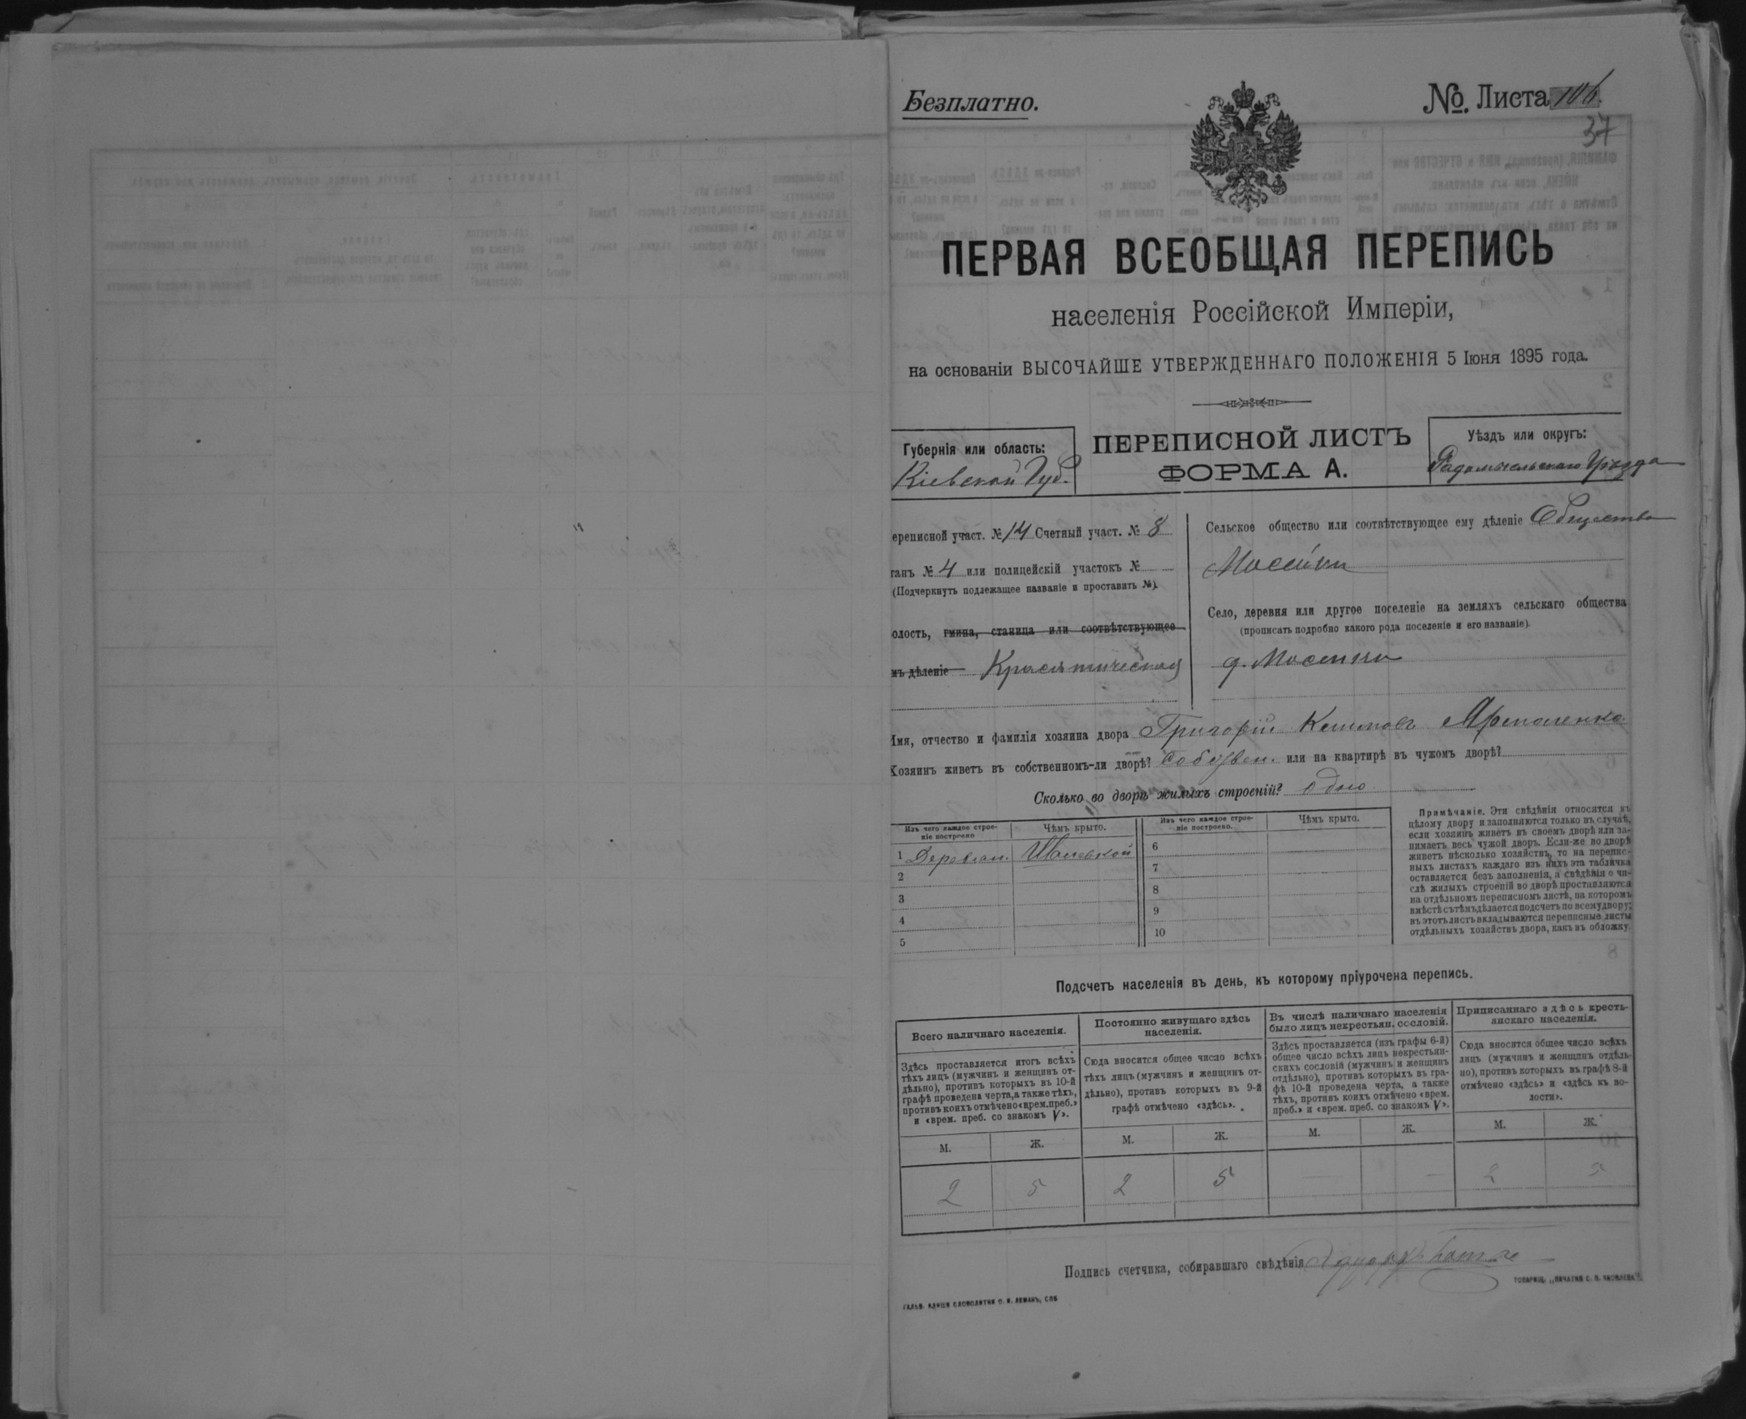 Безплатно.
№. Листа 106.
37
ПЕРВАЯ ВСЕОБЩАЯ ПЕРЕПИСЬ
населенія Россійской Имперіи,
на основаніи ВЫСОЧАЙШЕ УТВЕРЖДЕННАГО ПОЛОЖЕНІЯ 5 Іюня 1895 года.
Губернія или область:
Кіевской Губ.
ПЕРЕПИСНОЙ ЛИСТЪ
ФОРМА А.
Уѣздъ или округъ:
Радомысльскаго Уѣзда
ереписной участ. № 14 Счетный участ. № 8
танъ № 4 или полицейскій участокъ №
(Подчеркнуть подлежащее названіе и проставить №).
олость, гмина, станица или соотвѣтствующее
мъ дѣленіе
Сельское общество или соотвѣтствующее ему дѣленіе Общество
Село, деревня или другое поселеніе на земляхъ сельскаго общества
(прописать подробно какого рода поселеніе и его названіе)
Имя, отчество и фамилія хозяина двора Григорій
Хозяинъ живетъ въ собственномъ-ли дворѣ? или на квартирѣ въ чужомъ дворѣ?
Сколько во дворѣ жилыхъ строеній? одно
Изъ чего каждое строе-
ніе построено
Чѣмъ крыто.
Изъ чего каждое строе-
ніе построено.
Чѣмъ крыто.
1 Деревян.
2
3
4
5
6
7
8
9
10
Примѣчаніе. Эти свѣдѣнія относятся къ
цѣлому двору и заполняются только въ случаѣ,
если хозяинъ живетъ въ своемъ дворѣ или за-
нимаетъ весь чужой дворъ. Если-же во дворѣ
живетъ нѣсколько хозяйствъ, то на перепис-
ныхъ листахъ каждаго изъ нихъ эта табличка
оставляется безъ заполненія, а свѣдѣнія о чи-
слѣ жилыхъ строеній во дворѣ проставляются
на отдѣльномъ переписномъ листѣ, на которомъ
вмѣстѣ съ тѣмъ дѣлается подсчетъ по всему двору;
въ этотъ листъ вкладываются переписные листы
отдѣльныхъ хозяйствъ двора, какъ въ обложку.
Подсчетъ населенія въ день, къ которому пріурочена перепись.
Всего наличнаго населенія.
Здѣсь проставляется итогъ всѣхъ
тѣхъ лицъ (мужчинъ и женщинъ от-
дѣльно), противъ которыхъ въ 10-й
графѣ проведена черта, а также тѣхъ,
противъ коихъ отмѣчено «врем. преб.»
и «врем. преб. со знакомъ V».
Постоянно живущаго здѣсь
населенія.
Сюда вносится общее число всѣхъ
тѣхъ лицъ (мужчинъ и женщинъ от-
дѣльно), противъ которыхъ въ 9-й
графѣ отмѣчено «здѣсь».
Въ числѣ наличнаго населенія
было лицъ некрестьян. сословій.
Здѣсь проставляется (изъ графы 6-й)
общее число всѣхъ лицъ некрестьян-
скихъ сословій (мужчинъ и женщинъ
отдѣльно), противъ которыхъ въ гра-
фѣ 10-й проведена черта, а также
тѣхъ, противъ коихъ отмѣчено «врем.
преб.» и «врем. преб. со знакомъ V».
Приписаннаго здѣсь кресть-
янскаго населенія.
Сюда вносится общее число всѣхъ
лицъ (мужчинъ и женщинъ отдѣль-
но), противъ которыхъ въ графѣ 8-й
отмѣчено «здѣсь» и «здѣсь въ во-
лости».
М. Ж. М. Ж. М. Ж. М. Ж.
2 5 2 5 - - 2 5
Подпись счетчика, собиравшаго свѣдѣнія